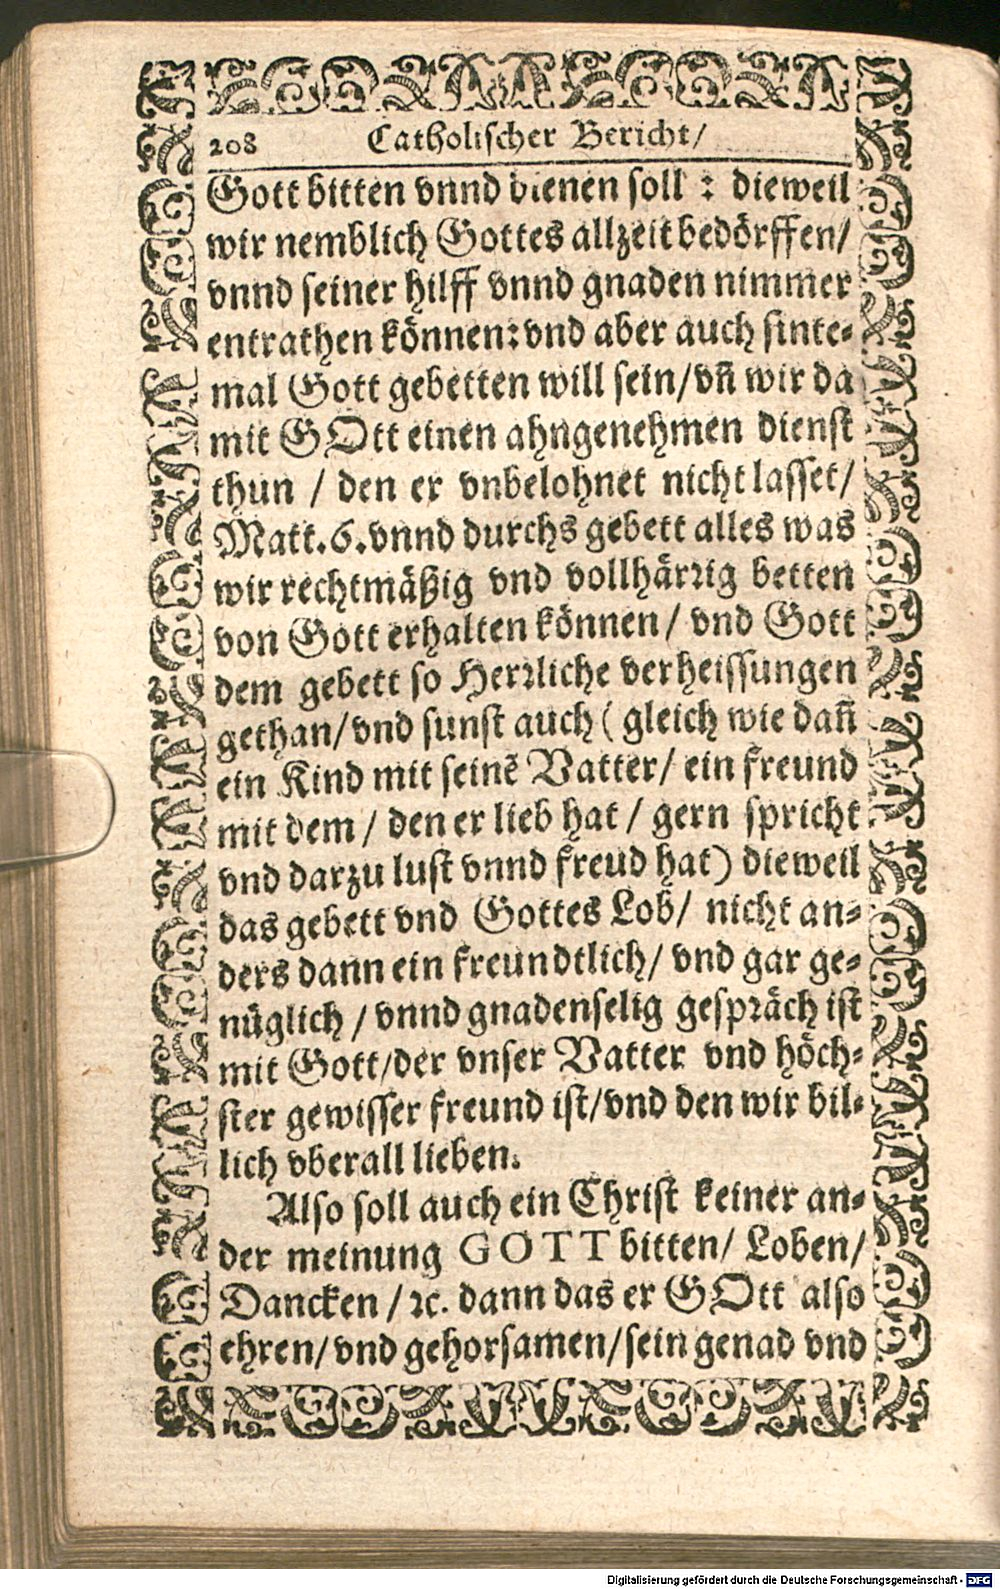 208 Catholischer Bericht/
Gott bitten vnnd dienen soll : dieweil
wir nemblich Gottes allzeit bedörffen/
vnnd seiner hilff vnnd gnaden nimmer
entrathen können: vnd aber auch sinte-
mal Gott gebetten will sein/ vñ wir da
mit GOtt einen ahngenehmen dienst
thun / den er vnbelohnet nicht lasset/
Matt. 6. vnnd durchs gebett alles was
wir rechtmäßig vnd vollhärꝛig betten
von Gott erhalten können/ vnd Gott
dem gebett so Herꝛliche verheissungen
gethan/ vnd sunst auch ( gleich wie dañ
ein Kind mit seinẽ Vatter/ ein freund
mit dem / den er lieb hat / gern spricht
vnd darzu lust vnnd freud hat) dieweil
das gebett vnd Gottes Lob/ nicht an-
ders dann ein freundtlich/ vnd gar ge-
nüglich / vnnd gnadenselig gespräch ist
mit Gott/ der vnser Vatter vnd höch-
ster gewisser freund ist/ vnd den wir bil-
lich vberall lieben.
Also soll auch ein Christ keiner an-
der meinung GOTT bitten/ Loben/
Dancken / ꝛc. dann das er GOtt also
ehren/ vnd gehorsamen/ sein genad vnd
Digitalisierung gefördert durch die Deutsche Forschungsgemeinschaft - DFG